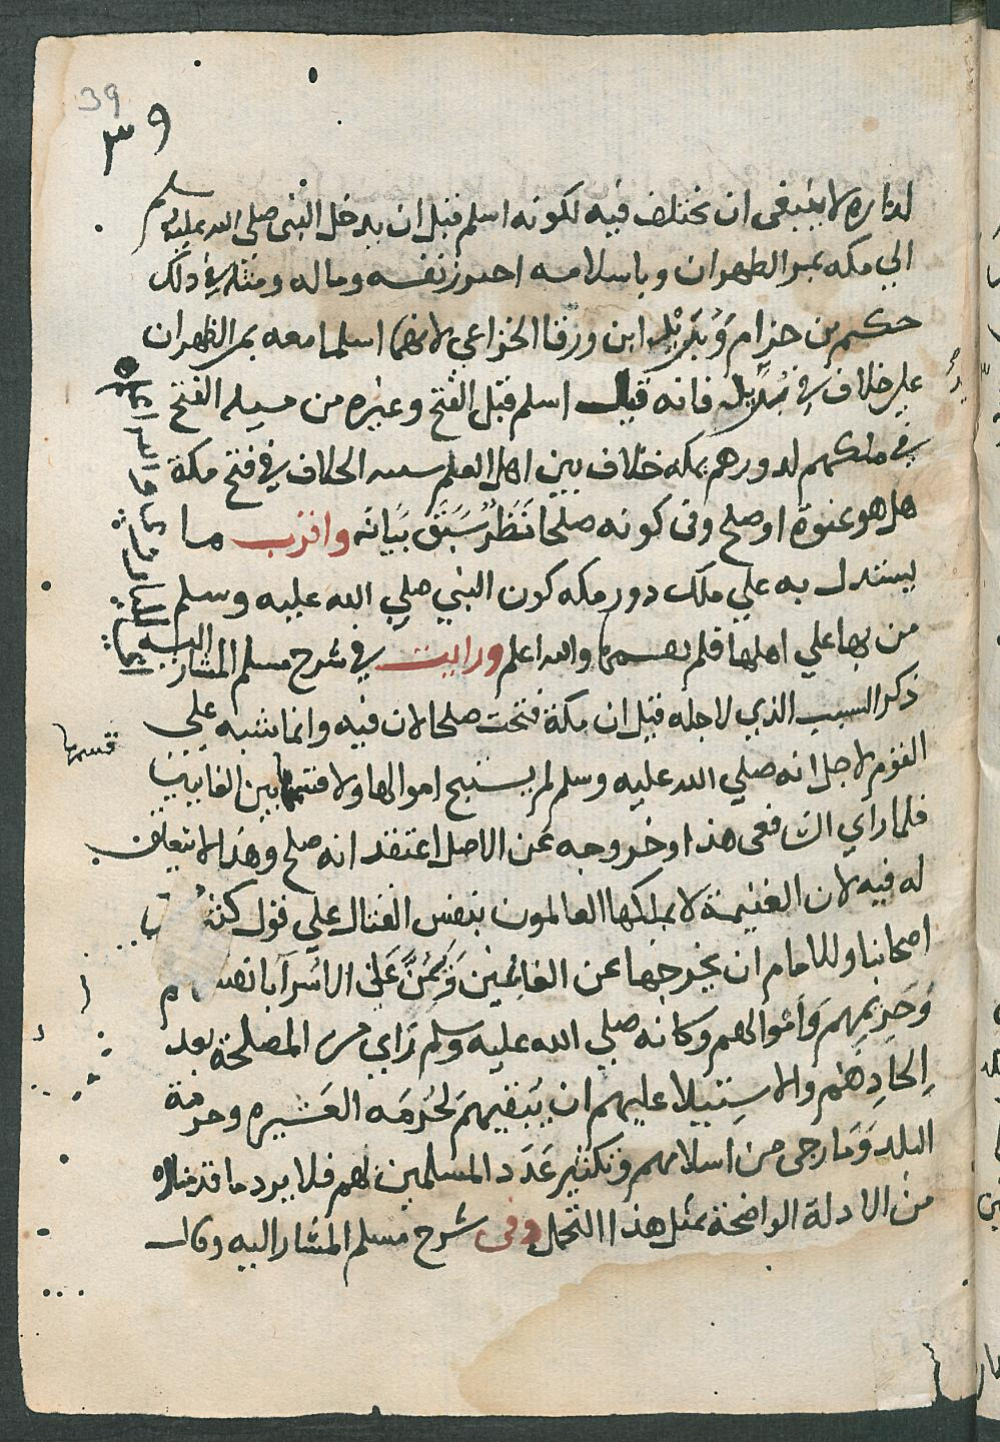 39
٣٩
لداره لا ينبغى ان يختلف فيه لكونه اسلم قبل ان يدخل النبى صلى الله عليه وسلم
الي مكه بمر الظهران وباسلامه احرز نفسه وماله ومثله في ذلك
حكيم بن حزام وبديل ابن ورقا الخزاعي لانهما اسلما معه بمر الظهران
علي خلاف في بديل فانه قيل اسلم قبل الفتح وغيره من مسيلمه الفتح
في ملكهم لدورهم بمكه خلاف بين اهل العلم سببه الخلاف في فتح مكة
هل هو عنوة او صلح وفى كونه صلحا نظر سبق بيانه واقرب ما
يستدل به علي ملك دور مكه كون النبي صلي الله عليه وسلم
من بها علي اهلها فلم يقسمها والله اعلم ورايت في شرح مسلم المشار اليه
ذكر السبب الذي لاجله قيل ان مكة فتحت صلحا لان فيه وانما شبه علي
القوم لاجل انه صلي الله عليه وسلم لم يستبح اموالها ولا قسمها بين الغانمين
قسمها
فلما راي الشافعى هذا وخروجه عن الاصل اعتقد انه صلح وهذا لا تعلق
له فيه لان الغنيمة لا يملكها الغانمون بنفس القتال علي قول كثير
اصحابنا وللامام ان يخرجها عن الغانمين ويمن علي الاسرا بانفسهم
وحريمهم واموالهم وكانه صلي الله عليه وسلم راي من المصلحة بعد
والاستيلا عليهم ان يبقيهم لحرمه العشيره وحرمة
البلد وما رجى من اسلامهم وتكثير عدد المسلمين بهم فلا يرد ما قدمناه
من الادلة الواضحة بمثل هذا التحمل وفى شرح مسلم المشار اليه وقال